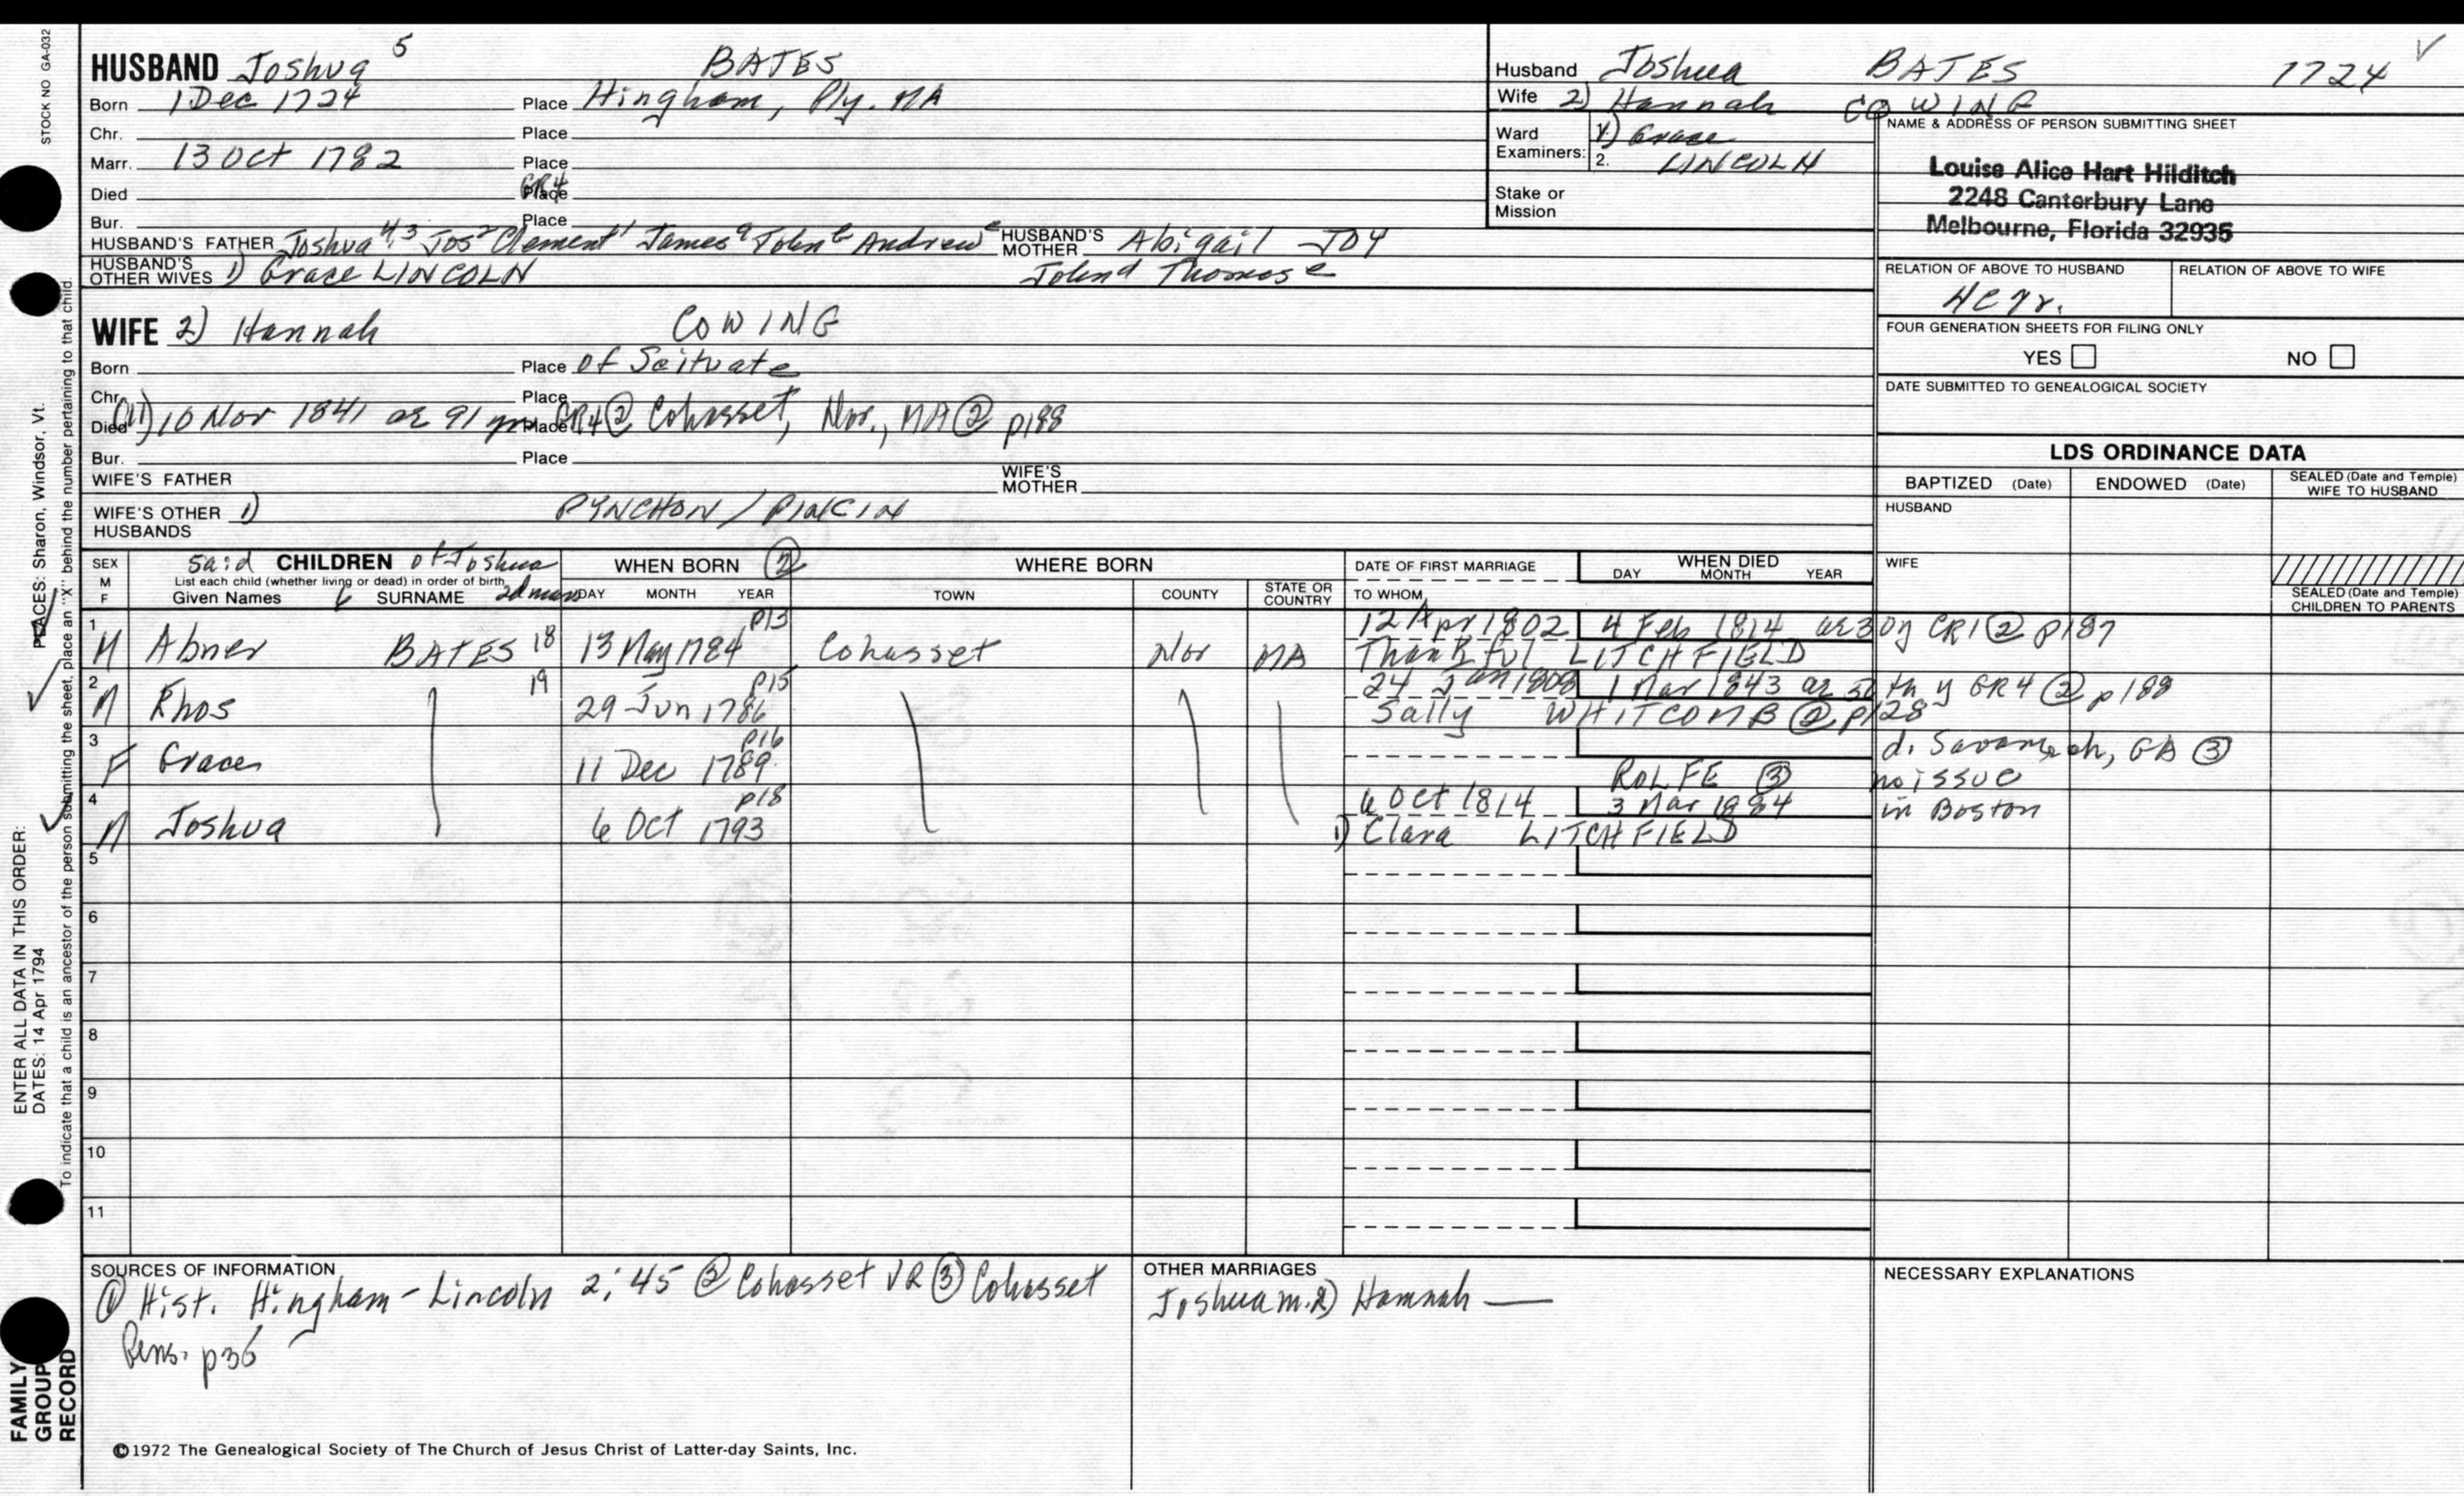 STOCK NO GA-032
HUSBAND Joshua 5 BATES
Born 1 Dec 1724 Place Hingham, Ply. MA
Chr. Place
Marr. 13 Oct 1782 Place
Died Place GR4
Bur. Place
HUSBAND'S FATHER Joshua 4, 3 Jos 2 Clement 1 James a John b Andrew c HUSBAND'S MOTHER Abigail JOY
HUSBAND'S OTHER WIVES 1) Grace LINCOLN John d Thomas e
Husband Joshua BATES 1724
Wife 2) Hannah COWING
Ward Examiners: 1) Grace
2. LINCOLN
Stake or Mission
NAME & ADDRESS OF PERSON SUBMITTING SHEET
Louise Alice Hart Hilditch
2248 Canterbury Lane
Melbourne, Florida 32935
RELATION OF ABOVE TO HUSBAND RELATION OF ABOVE TO WIFE
FOUR GENERATION SHEETS FOR FILING ONLY
YES NO
DATE SUBMITTED TO GENEALOGICAL SOCIETY
WIFE 2) Hannah COWING
Born Place of Scituate
Chr. Place
Died (11) 10 Nov 1841 ae 91 Place GR4 ② Cohasset, Nor., MA ② p188
Bur. Place
WIFE'S FATHER WIFE'S MOTHER
WIFE'S OTHER HUSBANDS 1) PYNCHON / PINCIN
LDS ORDINANCE DATA
BAPTIZED (Date) ENDOWED (Date) SEALED (Date and Temple) WIFE TO HUSBAND
HUSBAND
WIFE
SEALED (Date and Temple) CHILDREN TO PARENTS
SEX M F said CHILDREN of Joshua WHEN BORN ② WHERE BORN DATE OF FIRST MARRIAGE WHEN DIED
List each child (whether living or dead) in order of birth
Given Names SURNAME DAY MONTH YEAR TOWN COUNTY STATE OR COUNTRY TO WHOM DAY MONTH YEAR
1 M Abner BATES 18 13 May 1784 p13 Cohasset Nor MA 12 Apr 1802 4 Feb 1814 ae 30y CR1 ② p187
Thankful LITCHFIELD
2 M Khos 19 29 Jun 1786 p15 24 Jan 1808 1 Mar 1843 ae GR4 ② p188
Sally WHITCOMB ② p128
3 F Grace 11 Dec 1789 p16 d. Savannah, GA ③
ROLFE ③ no issue
4 M Joshua 6 Oct 1793 p18 6 Oct 1814 3 Mar 1884 in Boston
1) Clara LITCHFIELD
5
6
7
8
9
10
11
SOURCES OF INFORMATION
① Hist. Hingham - Lincoln 2:45 ② Cohasset VR ③ Cohasset
Gens. p36
OTHER MARRIAGES
Joshua m. 2) Hannah —
NECESSARY EXPLANATIONS
©1972 The Genealogical Society of The Church of Jesus Christ of Latter-day Saints, Inc.
FAMILY GROUP RECORD
ENTER ALL DATA IN THIS ORDER:
DATES: 14 Apr 1794 PLACES: Sharon, Windsor, Vt.
To indicate that a child is an ancestor of the person submitting the sheet, place an "X" behind the number pertaining to that child.